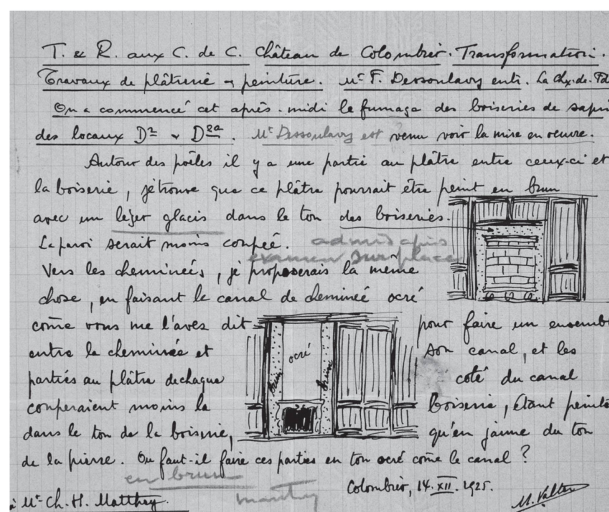 T. & R. aux C. de C. Château de Colombier. Transformation.
Travaux de plâtrerie & peinture. Mr F. Dessoulavy entr. La Chx-de-Fd
On a commencé cet après-midi le fumage des boiseries de sapin
des locaux D² & D²ᵃ. Mr Dessoulavy est venu voir la mise en œuvre.
Autour des poêles il y a une partie au plâtre entre ceux-ci et
la boiserie, je trouve que ce plâtre pourrait être peint en brun
avec un léger glacis dans le ton des boiseries.
La paroi serait moins coupée. admis après
examen sur place
Vers les cheminées, je proposerais la même
chose, en faisant le canal de cheminée ocré
come vous me l'avez dit pour faire un ensemble
entre la cheminée et son canal, et les
parties au plâtre de chaque côté du canal
couperaient moins la boiserie, étant peintes
dans le ton de la boiserie, qu'en jaune du ton
de la pierre. Ou faut-il faire ces parties en ton ocré come le canal ?
en brun
Colombier, 14. XII. 1925.
à Mr Ch. H. Matthey.
ocré
brun
brun